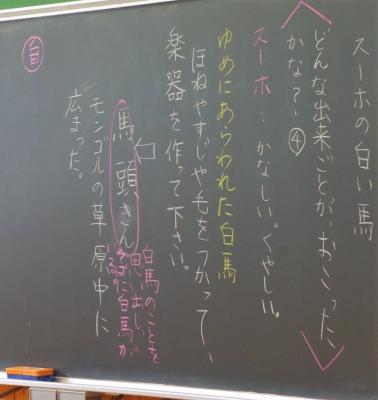 スーホの白い馬
どんな出来ごとが、おこった
かな?④
スーホ…かなしい。くやしい。
ゆめにあらわれた白馬
ほねやすじや毛をつかって、
楽器を作って下さい。
馬頭きん
白馬のことを
思い出し、
そばに白馬が
いる。
モンゴルの草原中に
広まった。
自